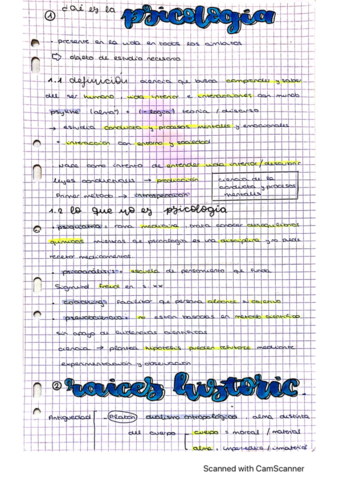 ① ¿Qué es la psicología
· presente en la vida en todos los ámbitos
objeto de estudio necesario
1.1 definición ciencia que busca comprender y saber
del ser humano vida interior e interacciones con mundo
psyche (alma) + (logia) teoría / discurso
→ estudia conducta y procesos mentales y emocionales
+ interacción con entorno y sociedad
· nace como intento de entender vida interior / descubrir
leyes conductuales → predicción
Primer método → introspección
ciencia de la
conducta y procesos
mentales
1.2 lo que no es psicología
· psiquiatría: rama medicina, trata conocer desequilibrios
químicos mientras de psicología es una disciplina y no puede
recetar medicamentos
· psicoanálisis: escuela de pensamiento que funda
Sigmund Freud en s. XX
facilitar que persona alcance
no están basadas en método científico
sin apoyo de evidencias científicas
ciencia → plantea hipótesis pueden mediante
experimentación y observación
② raíces históric.
Antigüedad · Platón: dualismo antropológico: alma distinta
del cuerpo cuerpo = mortal / material
alma = / inmaterial
Scanned with CamScanner